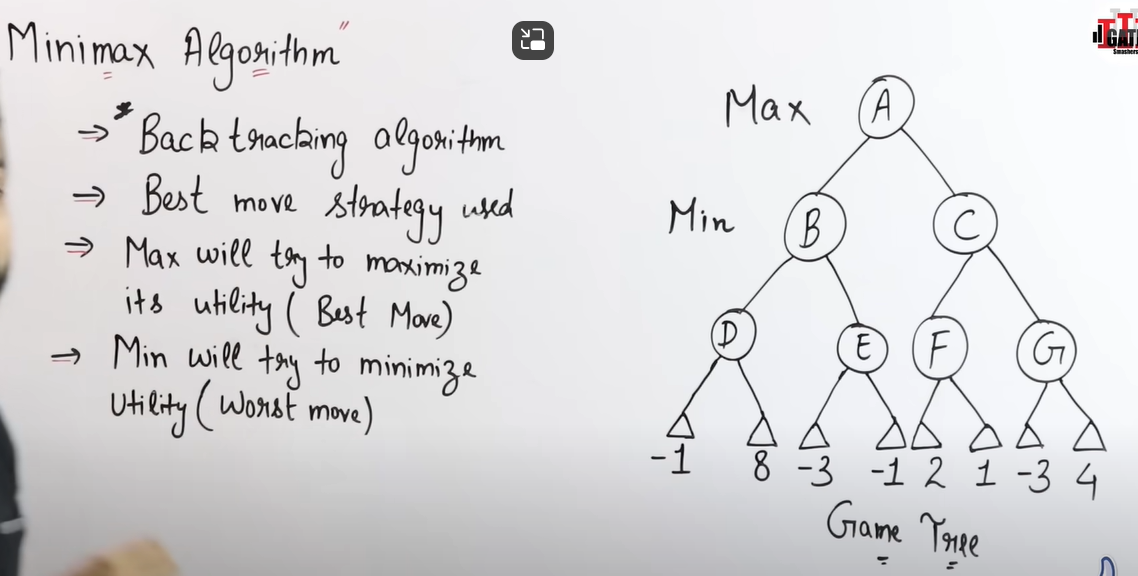 Minimax Algorithm"
⇒ * Backtracking algorithm
⇒ Best move strategy used
⇒ Max will try to maximize
its utility (Best Move)
⇒ Min will try to minimize
Utility (Worst move)
Max A
Min B C
D E F G
-1 8 -3 -1 2 1 -3 4
Game Tree
GATE
Smashers